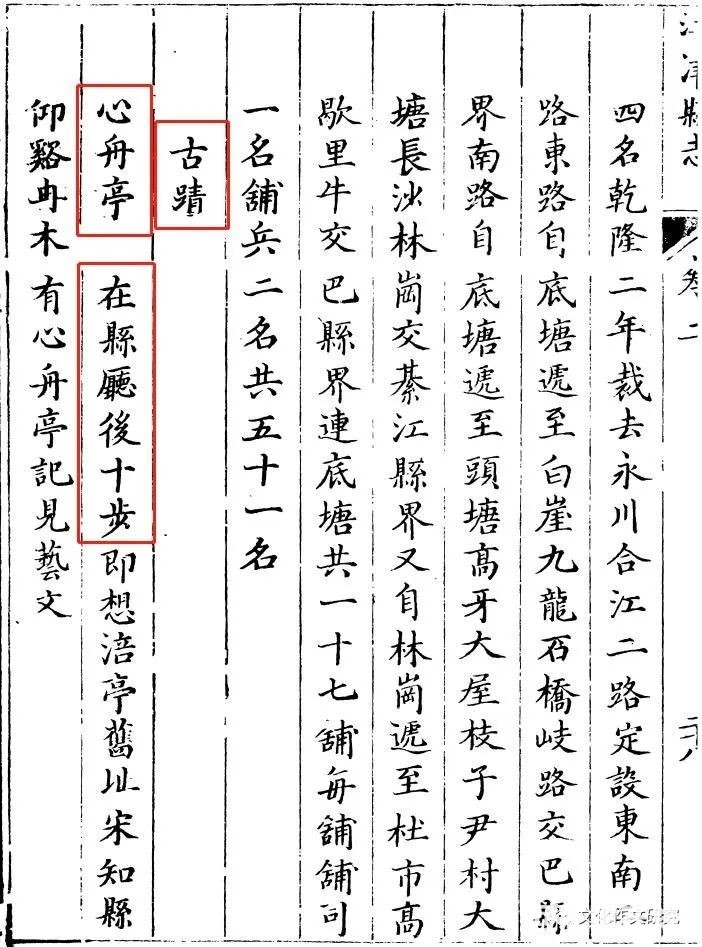 江津縣志 卷二 二十八
四名乾隆二年裁去永川合江二路定設東南
路東路自底塘遞至白崖九龍石橋岐路交巴縣
界南路自底塘遞至頭塘高牙大屋枝子尹村大
塘長沙林崗交綦江縣界又自林崗遞至杜市高
歇里牛交巴縣界連底塘共一十七舖每舖舖司
一名舖兵二名共五十一名
古蹟
心舟亭 在縣廳後十步即想涪亭舊址宋知縣
仰谿冉木有心舟亭記見藝文